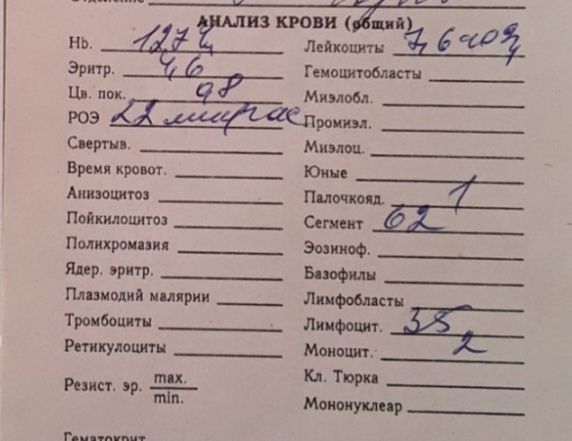 АНАЛИЗ КРОВИ (общий)
Hb. 127
Эритр. 4,6
Цв. пок. 98
РОЭ 22 мм/час
Свертыв.
Время кровот.
Анизоцитоз
Пойкилоцитоз
Полихромазия
Ядер. эритр.
Плазмодий малярии
Тромбоциты
Ретикулоциты
Резист. эр. max.
min.
Гематокрит
Лейкоциты 7,6
Гемоцитобласты
Миэлобл.
Промиэл.
Миэлоц.
Юные
Палочкояд. 1
Сегмент 62
Эозиноф.
Базофилы
Лимфобласты
Лимфоцит. 35
Моноцит. 2
Кл. Тюрка
Мононуклеар